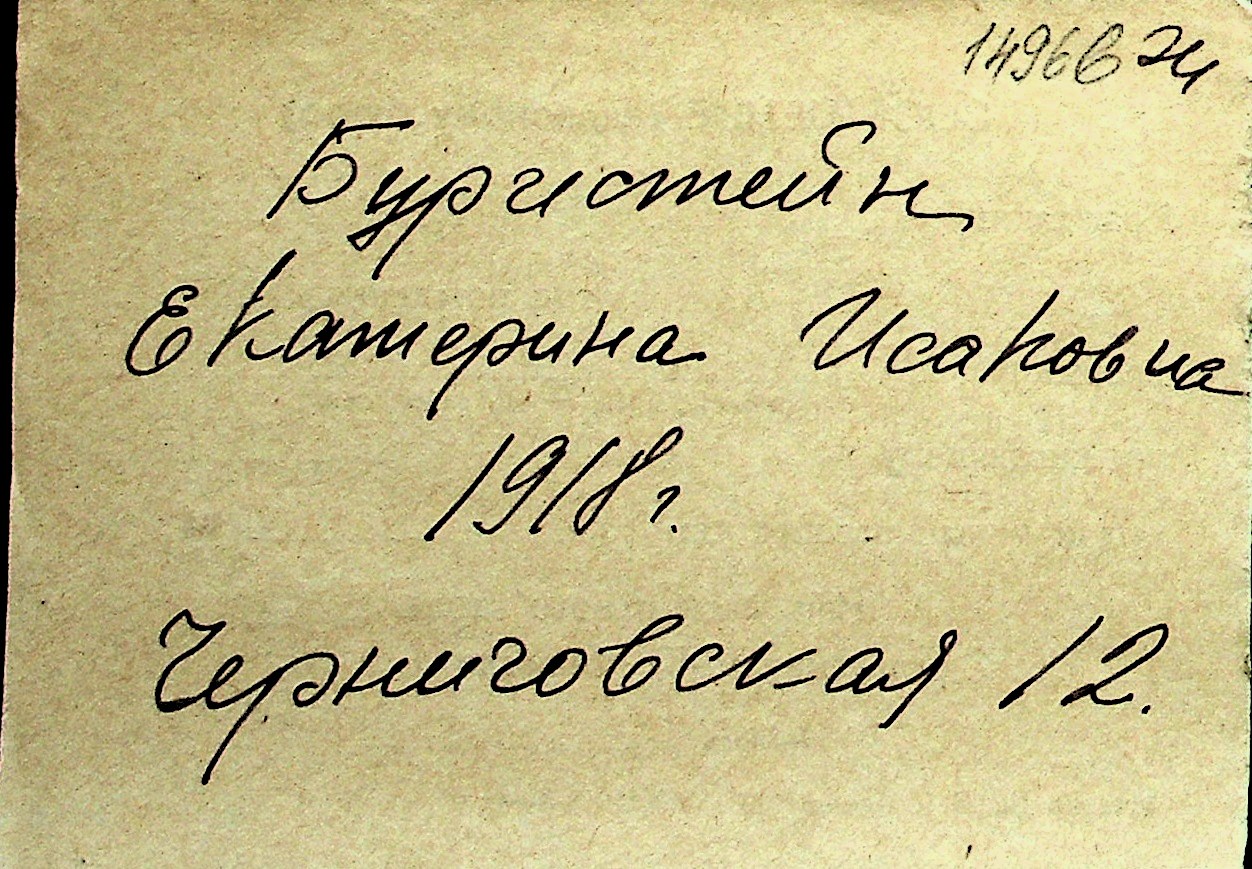 1496в Ж
Буристейн
Екатерина Исаковна
1918 г.
Черниговская 12.